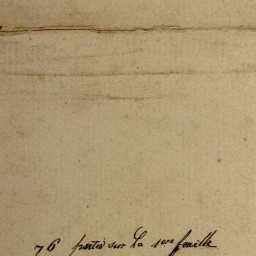 76 portés sur la 1ere feuille